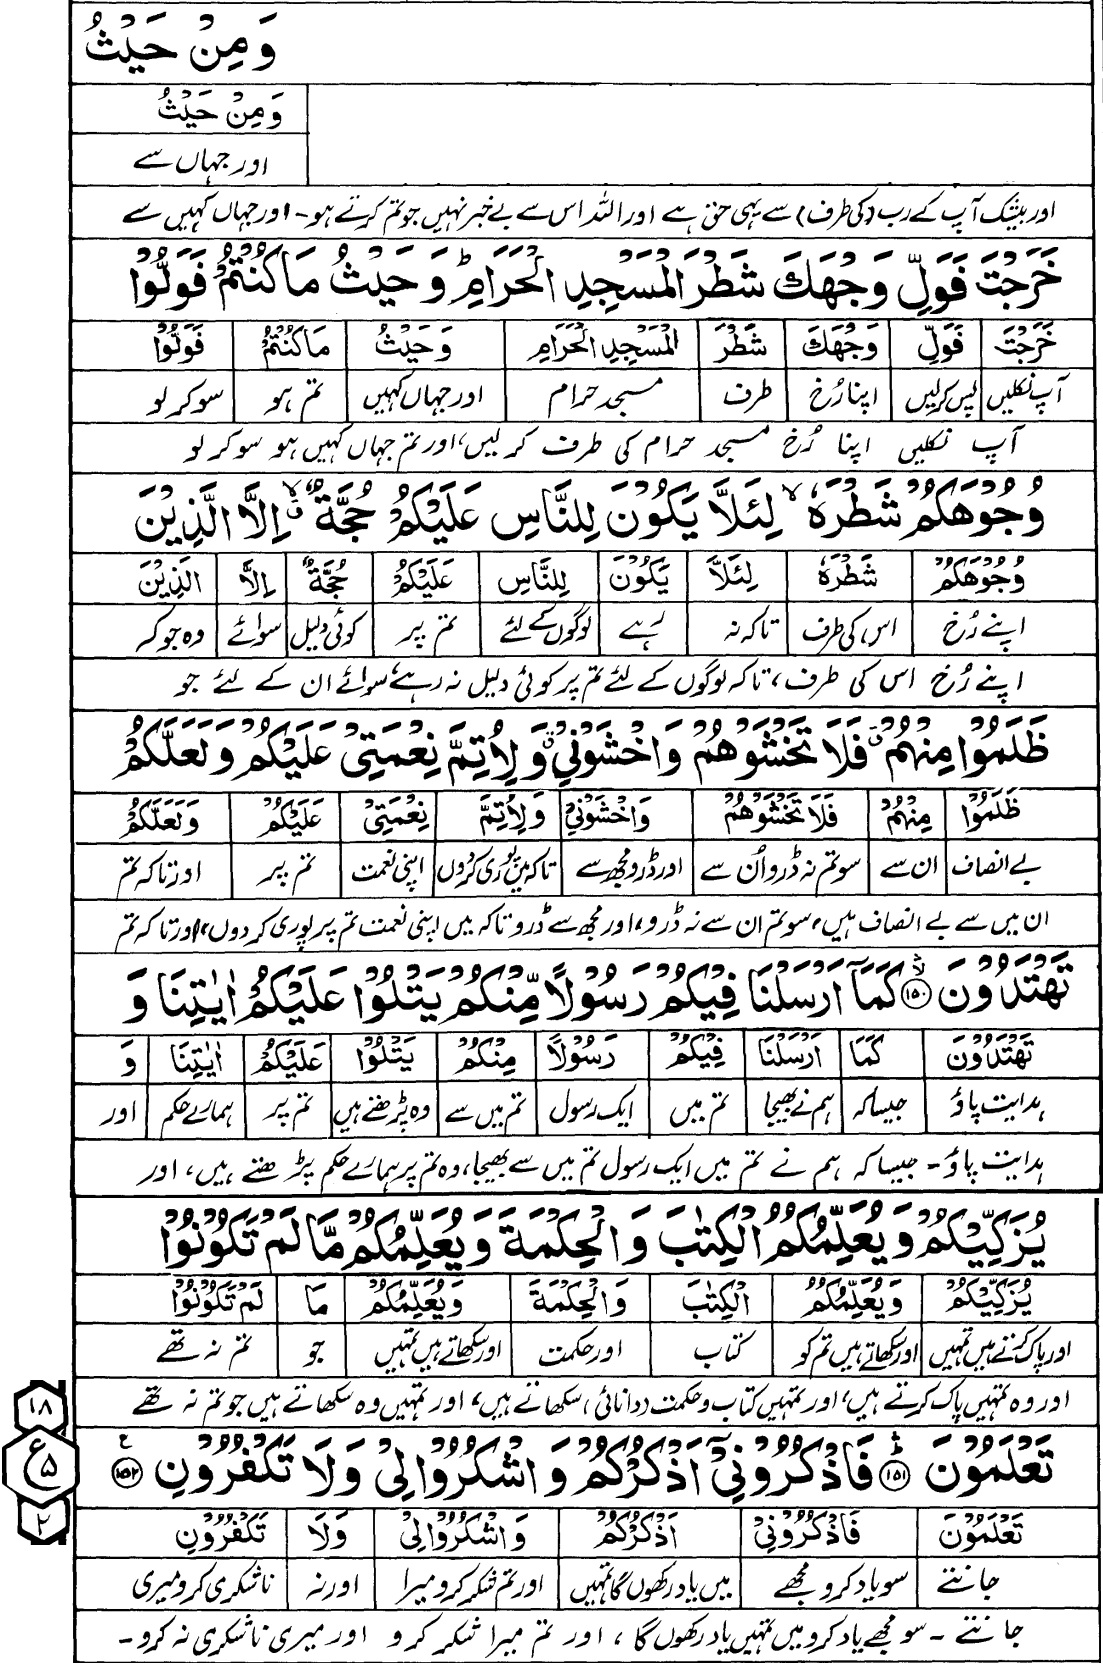 وَمِنْ حَيْثُ
وَمِنْ حَيْثُ
اور جہاں سے
اور بیشک آپ کے رب (کی طرف) سے یہی حق ہے اور اللہ اس سے بے خبر نہیں جو تم کرتے ہو۔ اور جہاں کہیں سے
خَرَجْتَ فَوَلِّ وَجْهَكَ شَطْرَ الْمَسْجِدِ الْحَرَامِ ؕ وَحَيْثُ مَا كُنْتُمْ فَوَلُّوْا
خَرَجْتَ فَوَلِّ وَجْهَكَ شَطْرَ الْمَسْجِدِ الْحَرَامِ وَحَيْثُ مَا كُنْتُمْ فَوَلُّوْا
آپ نکلیں پس کر لیں اپنا رُخ طرف مسجد حرام اور جہاں کہیں تم ہو سو کر لو
آپ نکلیں اپنا رُخ مسجد حرام کی طرف کر لیں، اور تم جہاں کہیں ہو سو کر لو
وُجُوْهَكُمْ شَطْرَهٗ ۙ لِئَلَّا يَكُوْنَ لِلنَّاسِ عَلَيْكُمْ حُجَّةٌ ۙ اِلَّا الَّذِيْنَ
وُجُوْهَكُمْ شَطْرَهٗ لِئَلَّا يَكُوْنَ لِلنَّاسِ عَلَيْكُمْ حُجَّةٌ اِلَّا الَّذِيْنَ
اپنے رُخ اس کی طرف تاکہ نہ رہے لوگوں کے لئے تم پر کوئی دلیل سوائے وہ جو کہ
اپنے رُخ اس کی طرف، تاکہ لوگوں کے لئے تم پر کوئی دلیل نہ رہے، سوائے ان کے لئے جو
ظَلَمُوْا مِنْهُمْ ۗ فَلَا تَخْشَوْهُمْ وَاخْشَوْنِيْ ۗ وَلِاُتِمَّ نِعْمَتِيْ عَلَيْكُمْ وَلَعَلَّكُمْ
ظَلَمُوْا مِنْهُمْ فَلَا تَخْشَوْهُمْ وَاخْشَوْنِيْ وَلِاُتِمَّ نِعْمَتِيْ عَلَيْكُمْ وَلَعَلَّكُمْ
بے انصاف ان سے سو تم نہ ڈرو اُن سے اور ڈرو مجھ سے تاکہ میں پوری کردوں اپنی نعمت تم پر اور تاکہ تم
ان میں سے بے انصاف ہیں، سو تم ان سے نہ ڈرو، اور مجھ سے ڈرو تاکہ میں اپنی نعمت تم پر پوری کر دوں، اور تاکہ تم
تَهْتَدُوْنَ ۙ۱۵۰ كَمَآ اَرْسَلْنَا فِيْكُمْ رَسُوْلًا مِّنْكُمْ يَتْلُوْا عَلَيْكُمْ اٰيٰتِنَا وَ
تَهْتَدُوْنَ كَمَا اَرْسَلْنَا فِيْكُمْ رَسُوْلًا مِنْكُمْ يَتْلُوْا عَلَيْكُمْ اٰيٰتِنَا وَ
ہدایت پاؤ جیسا کہ ہم نے بھیجا تم میں ایک رسول تم میں سے وہ پڑھتے ہیں تم پر ہمارے حکم اور
ہدایت پاؤ۔ جیسا کہ ہم نے تم میں ایک رسول تم میں سے بھیجا، وہ تم پر ہمارے حکم پڑھتے ہیں، اور
يُزَكِّيْكُمْ وَيُعَلِّمُكُمُ الْكِتٰبَ وَالْحِكْمَةَ وَيُعَلِّمُكُمْ مَّا لَمْ تَكُوْنُوْا
يُزَكِّيْكُمْ وَيُعَلِّمُكُمُ الْكِتٰبَ وَالْحِكْمَةَ وَيُعَلِّمُكُمْ مَا لَمْ تَكُوْنُوْا
اور پاک کرتے ہیں تمہیں اور سکھاتے ہیں تم کو کتاب اور حکمت اور سکھاتے ہیں تمہیں جو تم نہ تھے
اور وہ تمہیں پاک کرتے ہیں، اور تمہیں کتاب و حکمت (دانائی) سکھاتے ہیں، اور تمہیں وہ سکھاتے ہیں جو تم نہ تھے
تَعْلَمُوْنَ ؕ۱۵۱ فَاذْكُرُوْنِيْٓ اَذْكُرْكُمْ وَاشْكُرُوْا لِيْ وَلَا تَكْفُرُوْنِ ۱۵۲ ع
۱۸
ع ۵
۲
تَعْلَمُوْنَ فَاذْكُرُوْنِيْ اَذْكُرْكُمْ وَاشْكُرُوْا لِيْ وَلَا تَكْفُرُوْنِ
جانتے سو یاد کرو مجھے میں یاد رکھوں گا تمہیں اور تم شکر کرو میرا اور نہ ناشکری کرو میری
جانتے۔ سو مجھے یاد کرو میں تمہیں یاد رکھوں گا، اور تم میرا شکر کرو اور میری ناشکری نہ کرو۔